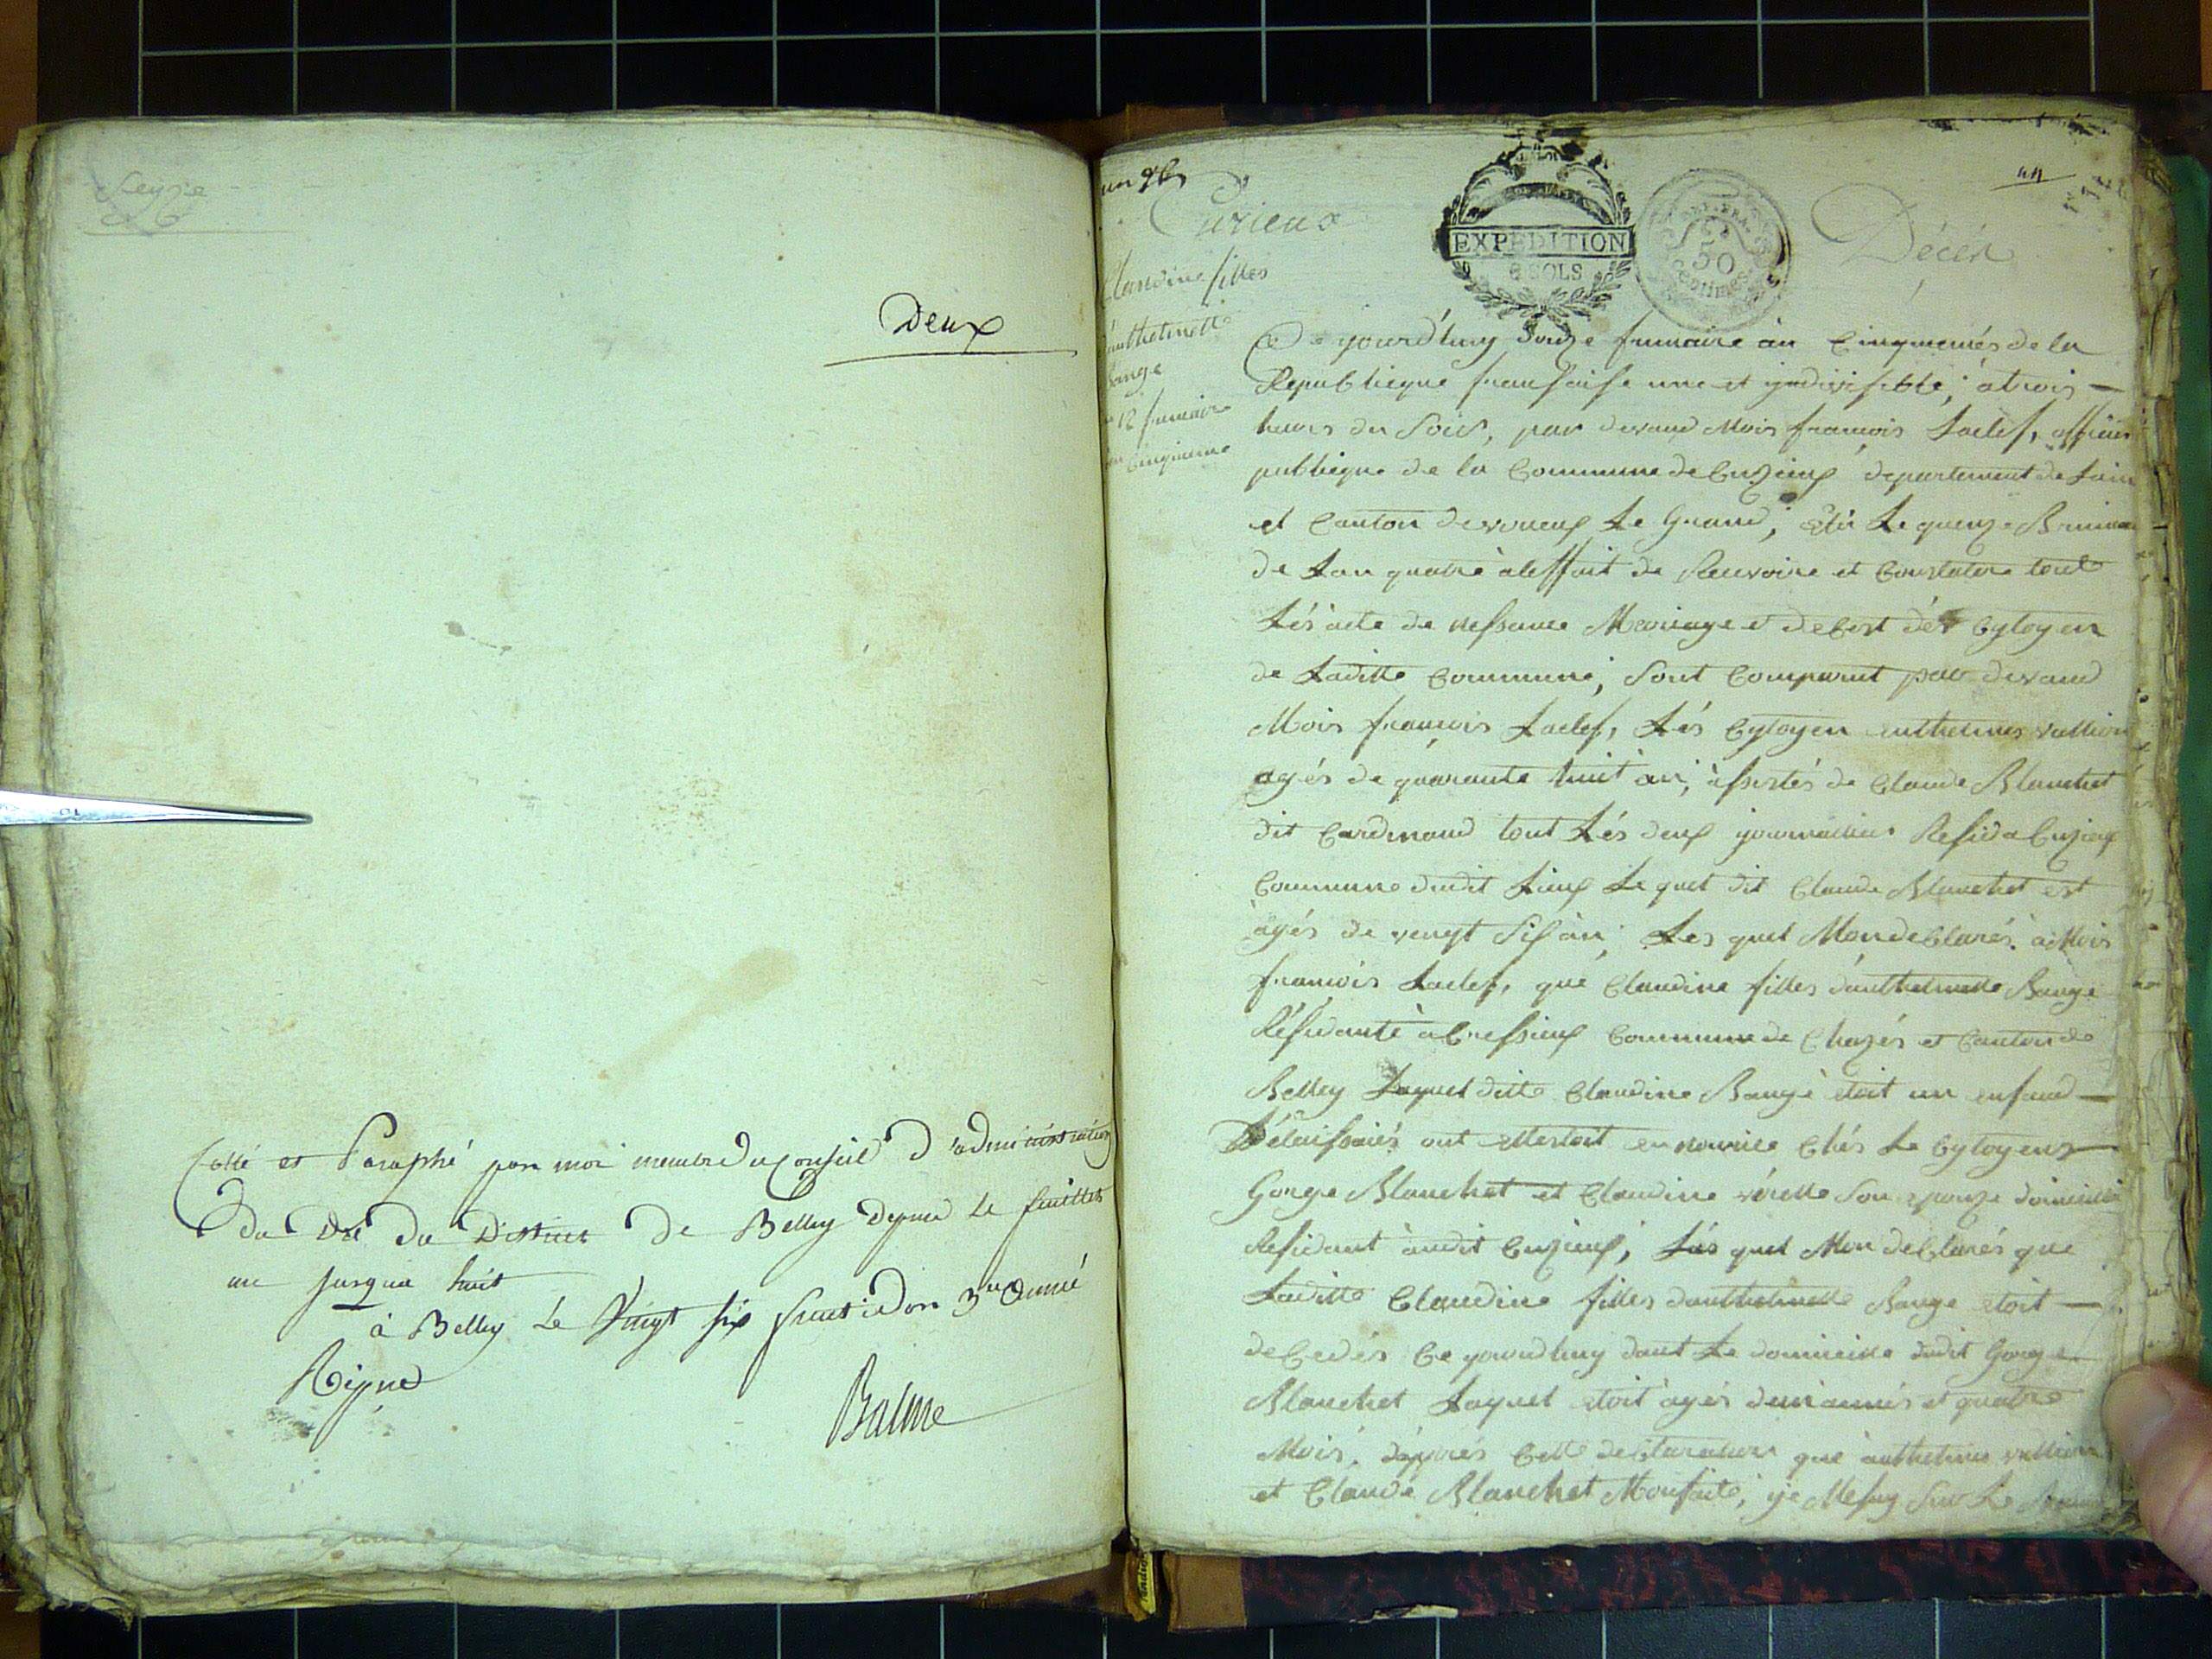 Seyze
Deux
Cotté et Paraphé par moi membre du Conseil d'administration
du dit du District de Belley depuis le feuillet
un jusqua huit
à Belley Le Vingt six fructidor 3me année
Signé
Balme
un
Curieux
Claudine filles
d'anthelmette
Bange
12 frimaire
an Cinquieme
EXPEDITION
6 SOLS
REP. FRA.
50
Centimes
Décés
Ce jourd'huy douze frimaire àn Cinquemés de la
Republieque fransaise une et yndivisible, à trois
heures du Soir, par devand Mois francois Laclef, officier
publieque de la Commune de Cuzieux departement de Lain
et Canton de vourieux Le Grand, élu Le quenze Brumaire
de Lan quatre à leffait de Recevoire et Constatere tout
Lés acte de nessance Mariage et de Cest dés Cytoyen
de Laditte Commune, Sont Comparut par devand
Mois francois Laclef, Lés Cytoyen anthelmes vullion
agés de quarante huit an, àssistés de Claude Blanchet
dit Cardinaud tout Lés deux journallier Resid a Cuzieux
Commune dudit Lieux Le quel dit Claude Blanchet est
àgés de vengt Six àn, Les quel Mon deClarés à Mois
francois Laclef, que Claudine filles d'anthelmette Bange
Résidante à Cressieux Commune de Chazés et Canton de
Belley Laquel ditte Claudine Bange étoit un enfand
Délaissaiés ont ettestoit en nourice Chés Le Cytoyens
Gorge Blanchet et Claudine Son epouze domicillié
Residant audit Cuzieux, Lés quel Mon deClarés que
Laditte Claudine filles danthelmette Bange étoit
deCedés Ce jourdhuy dant Le domicille dudit Gorge
Blanchet Laquel étoit àgés d'une annés et quatre
Mois, d'aprés Cette deClaration que anthelmes vullion
et Claude Blanchet Monfaite, je Mesuy Sur Le